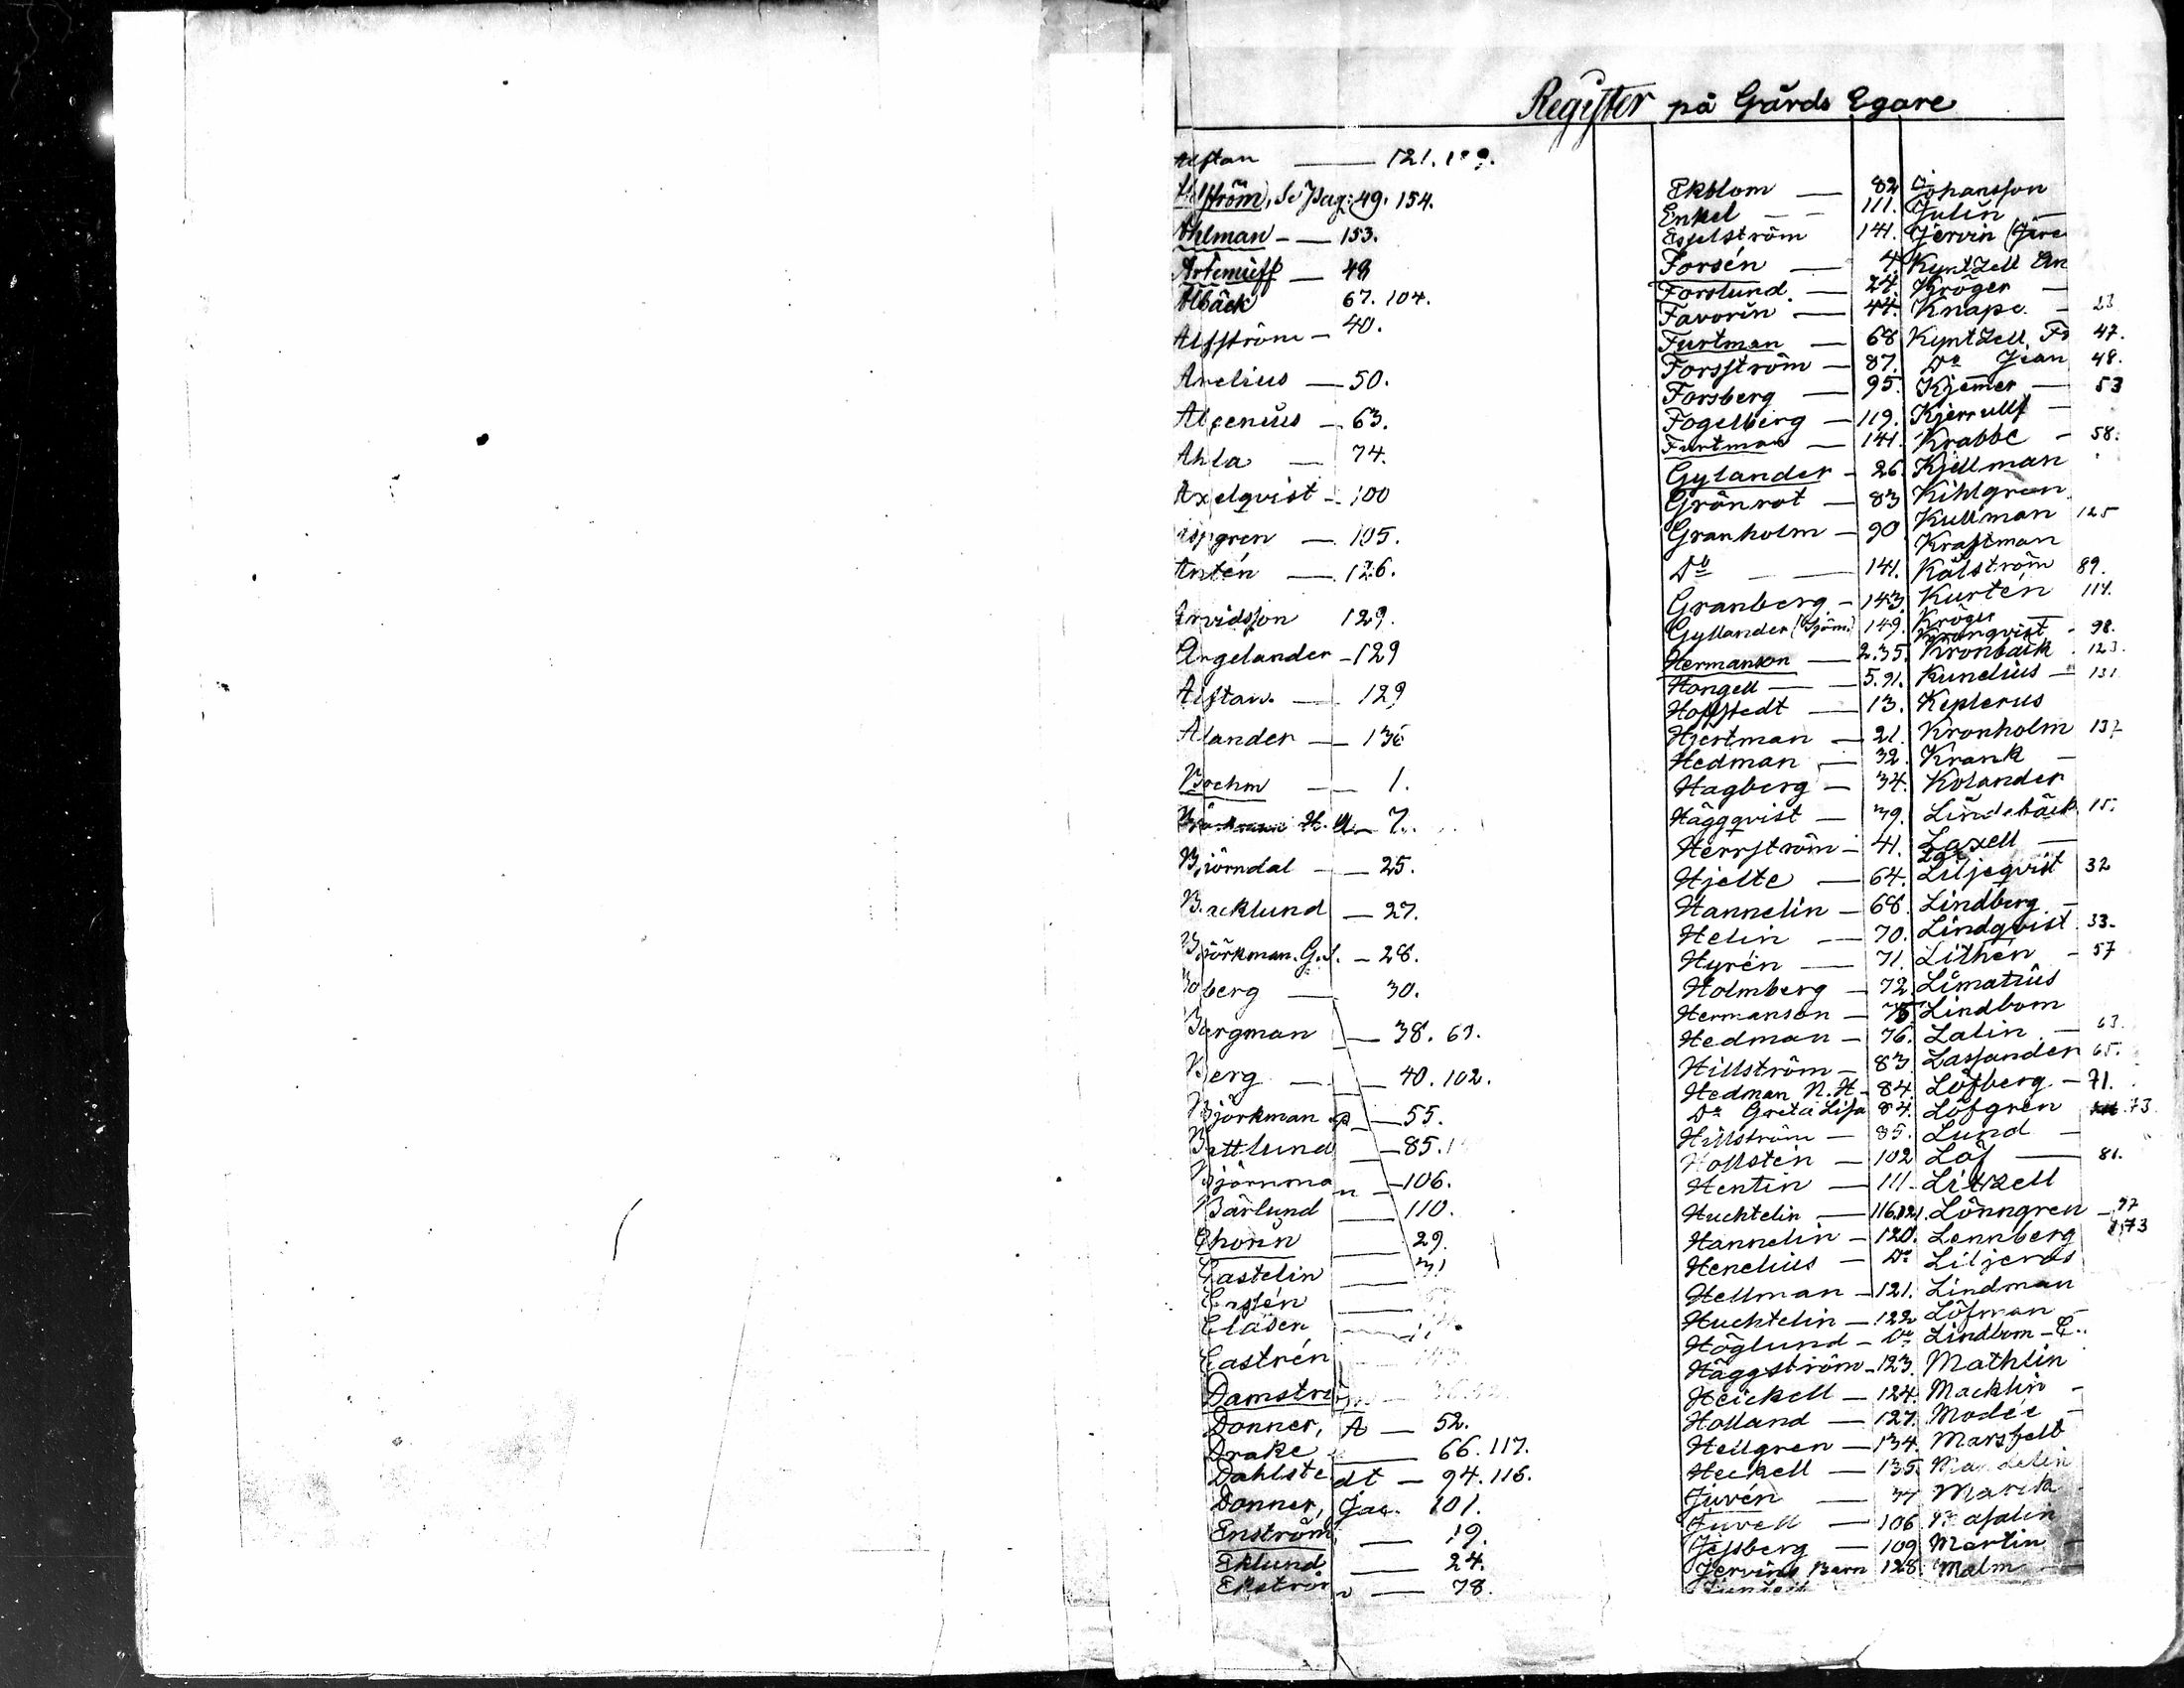 Register på Gårds Egare
Alftan — 121. 129.
ström, Se Pag: 49. 154.
Ahlman — 153.
Artemieff — 49
Albäck 67. 104.
Alfström — 40.
Arelius — 50.
Algenius — 63.
Ahla — 74.
Axelqvist — 100
Aspgren — 105.
Antén — 126.
Arvidsson 129.
Argelander — 129
Alftan — 129
Alander — 136
Boehm — 1.
H. A — 7.
Björndal — 25.
Backlund — 27.
Björkman. G. — 28.
Boberg — 30.
Bergman — 38. 61.
Berg — 40. 102.
Björkman — 55.
Bättlund — 85.
Björnman — 106.
Bärlund — 110.
Chorin — 29.
Castelin — 31
Castén
Clasen
Castrén
Damström
Donner, A — 52.
Drake — 66. 117.
Dahlstedt — 94. 116.
Donner, Jac. 101.
Enström — 19.
Eklund — 24.
Ekström — 78.
Ekblom — 82
Enkel — 111.
Esselström 141.
Forsén — 4.
Forslund — 24.
Favorin — 44.
Furtman — 68
Forsström — 87.
Forsberg — 95.
Fogelberg — 119.
Furtman — 141.
Gylander — 26.
Grönrot — 83
Granholm — 90
Do — 141.
Granberg — 143.
Gyllander (Sjöm.) 149.
Hermanson — 2. 35.
Hongell — 5. 91.
Hoffstedt — 13.
Hjertman — 21.
Hedman — 32.
Hagberg — 34.
Häggqvist — 39.
Herrström — 41.
Hjelte — 64.
Hannelin — 68.
Helin — 70.
Hyrén — 71.
Holmberg — 72.
Hermanson — 75
Hedman — 76.
Hillström — 83
Hedman N. H — 84.
Do Greta Lisa 84.
Hillström — 85.
Hollsten — 102
Hentin — 111.
Huchtelin — 116. 121.
Hannelin — 120.
Henelius — Do
Hellman — 121.
Huchtelin — 122
Höglund — Do
Häggström — 123.
Heickell — 124.
Holland — 127.
Hellgren — 134.
Heickell — 135.
Juvén — 37
Juvell — 106
Jessberg — 109
Jervins Barn 128.
Johansson
Julin —
Jervin
Kyntzell
Kröger —
Knape — 23
Kyntzell, Fr 47.
Do Jean 48.
Kjemer — 53
Kjerrulf —
Krabbe — 58.
Kjellman
Kihlgren
Kullman 125
Kraftman
Kålström 89.
Kurtén 114.
Kröger
Kronqvist — 98.
Kronbäck 123.
Kunelius — 131
Keplerus
Kronholm 137
Krank —
Kolander
Lindebäck 15.
Laxell —
Liljeqvist 32
Lindberg —
Lindqvist 33.
Lithén — 57
Limatius
Lindbom
Lalin — 63.
Lassander 65.
Löfberg — 71.
Löfgren 73.
Lund —
Löf — 81.
Litzell
Lönngren — 97
Lennberg 173
Liljeros
Lindman
Löfman —
Lindbom — C.
Mathlin
Macklin —
Modée —
Marsfelt
Mandelin
Marck
Masalin
Martin —
Malm —